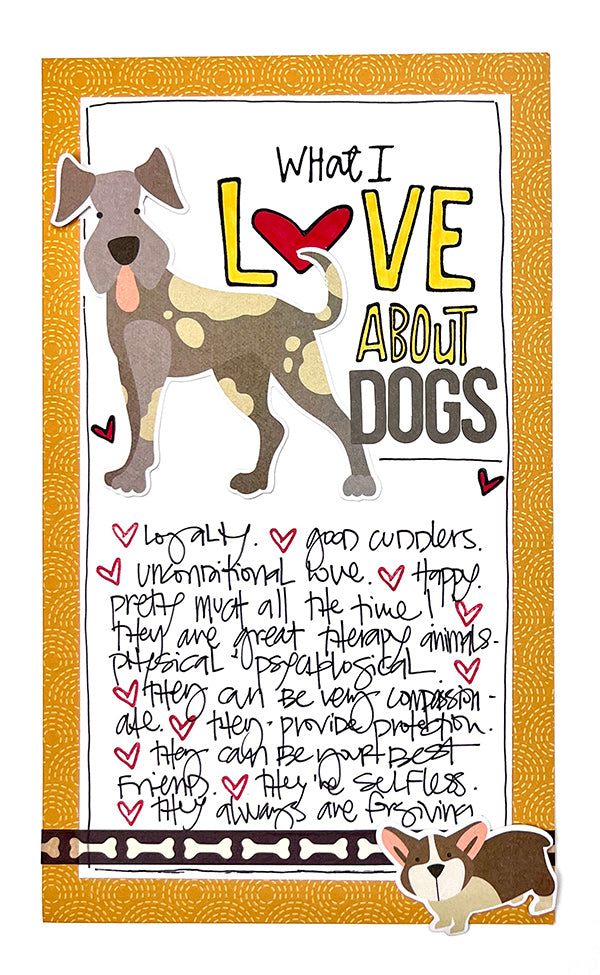 What I
LOVE
ABOUT
DOGS
Loyalty. good cuddlers.
unconditional love. Happy
pretty much all the time!
they are great therapy animals-
physical psycaplogical
they can be very compassion-
ate. they provide protection.
they can be your best
friend. they're selfless.
they always are forgiving